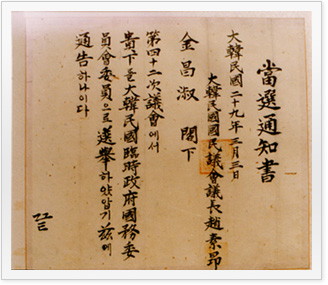 當選通知書
大韓民國二十九年三月三日
大韓民國國民議會議長趙素昂
金昌淑 閣下
第四十二次議會에서
貴下를大韓民國臨時政府國務委
員會委員으로選擧하얏압기玆에
通告하나이다
끝